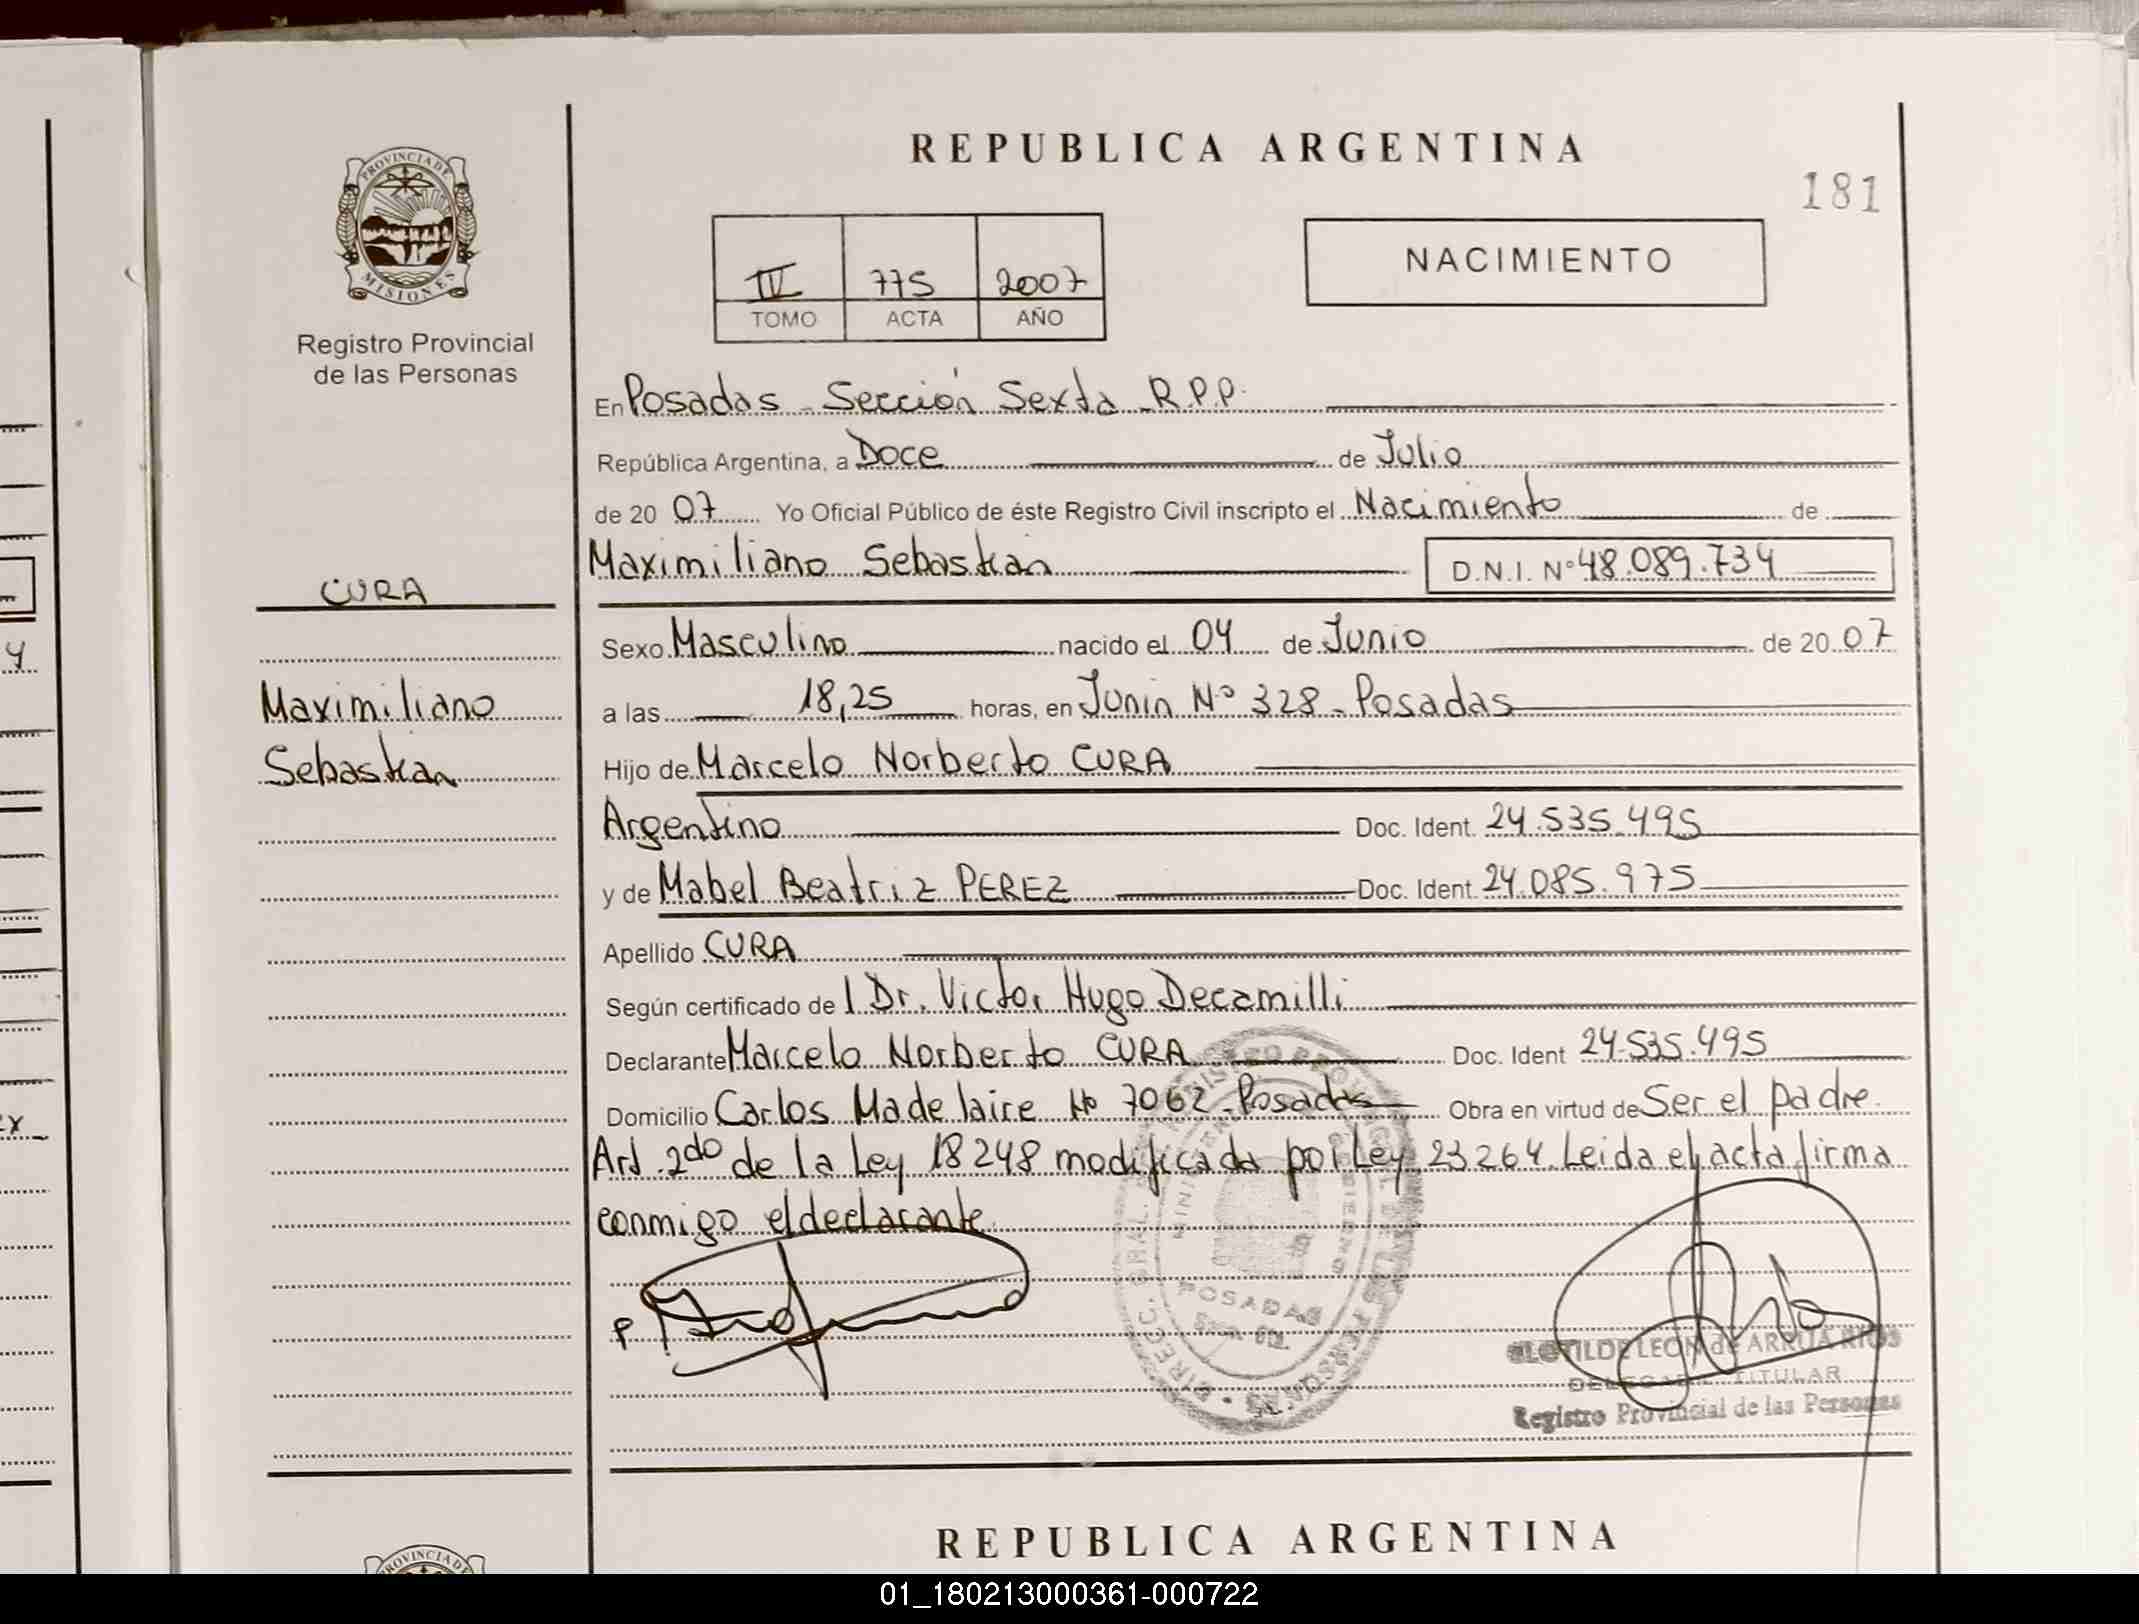 REPUBLICA ARGENTINA
181
PROVINCIA DE
MISIONES
Registro Provincial
de las Personas
IV 775 2007
TOMO ACTA AÑO
NACIMIENTO
En Posadas - Sección Sexta R.P.P.
República Argentina, a Doce de Julio
de 20 07 Yo Oficial Público de éste Registro Civil inscripto el Nacimiento de
Maximiliano Sebastian D.N.I. Nº 48.089.734
CURA
Maximiliano
Sebastian
Sexo Masculino nacido el 04 de Junio de 20 07
a las 18,25 horas, en Junin Nº 328 - Posadas
Hijo de Marcelo Norberto CURA
Argentino Doc. Ident. 24.535.495
y de Mabel Beatriz PEREZ Doc. Ident. 24.085.975
Apellido CURA
Según certificado de l Dr. Victor Hugo Decamilli
Declarante Marcelo Norberto CURA Doc. Ident 24.535.495
Domicilio Carlos Madelaire Nº 7062 - Posadas Obra en virtud de Ser el padre
Art. 2do de la Ley 18248 modificada por Ley 23264. Leida el acta firma
conmigo el declarante
POSADAS
CLOTILDE LEON de ARRUA RIOS
TITULAR
Registro Provincial de las Personas
REPUBLICA ARGENTINA
PROVINCIA DE
01_180213000361-000722